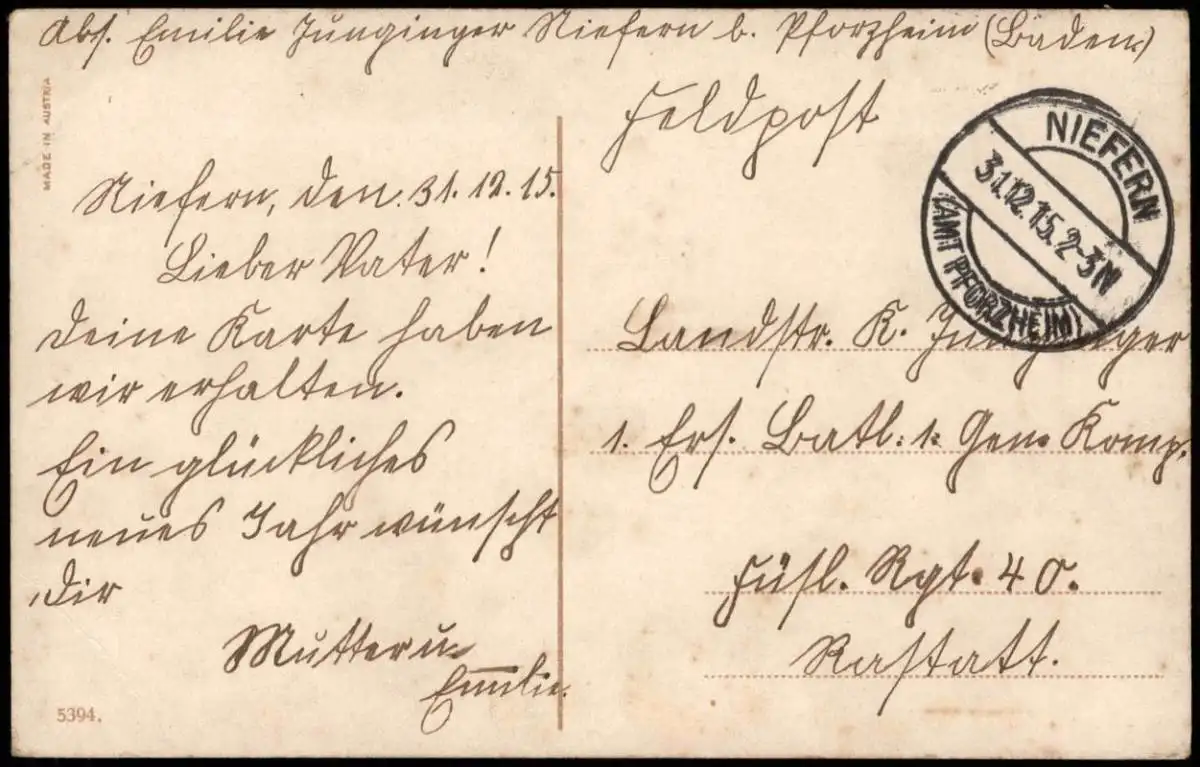 Abs. Emilie Junginger Niefern b. Pforzheim (Baden.)
MADE IN AUSTRIA
Niefern, den. 31. 12. 15.
Lieber Vater!
Deine Karte haben
wir erhalten.
Ein glückliches
neues Jahr wünscht
dir
Mutter u.
Emilie.
5394.
Feldpost
NIEFERN
31.12.15. 2-3N
(AMT PFORZHEIM)
Landstr. K. Junginger
1. Ers. Batl. 1. Gen. Komp.
Füsl. Rgt. 40.
Rastatt.